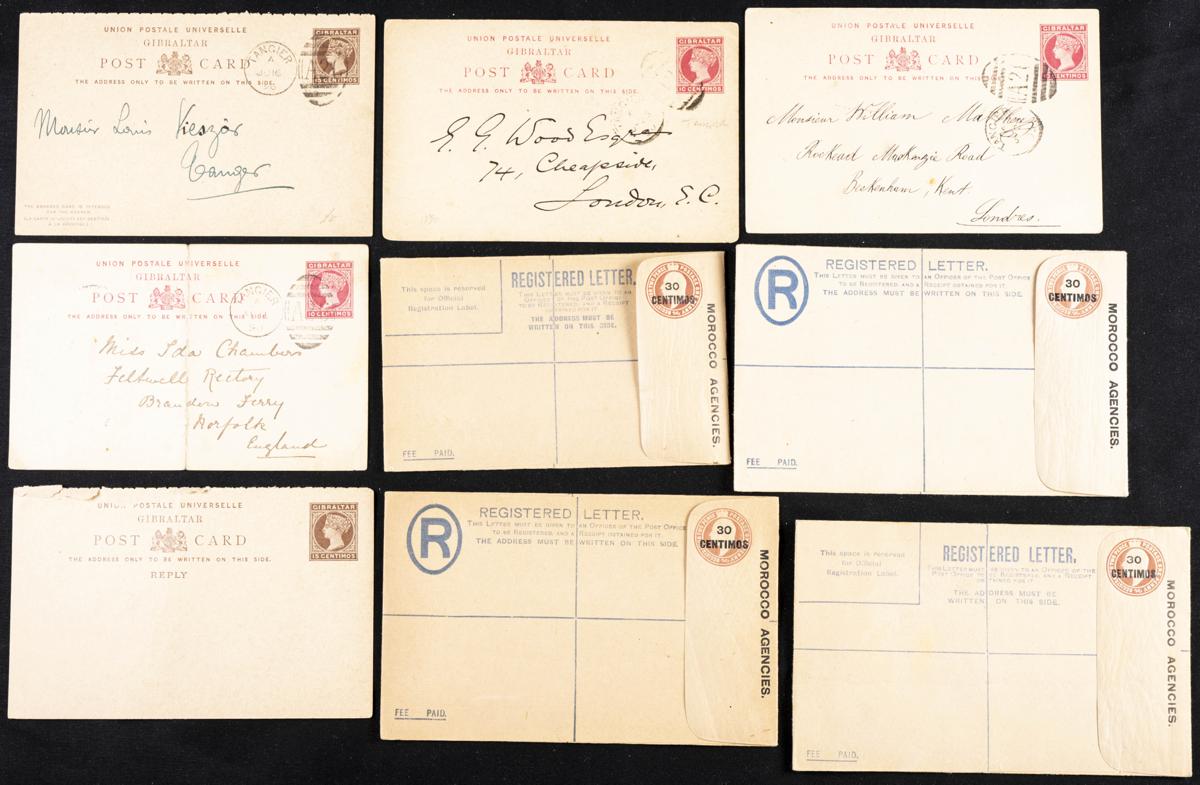 UNION POSTALE UNIVERSELLE
GIBRALTAR
POST CARD
THE ADDRESS ONLY TO BE WRITTEN ON THIS SIDE.
GIBRALTAR
15 CENTIMOS
TANGIER
A
Monsieur Louis
Tanger
THE ANNEXED CARD IS INTENDED
FOR THE ANSWER.
UNION POSTALE UNIVERSELLE
GIBRALTAR
POST CARD
THE ADDRESS ONLY TO BE WRITTEN ON THIS SIDE.
GIBRALTAR
10 CENTIMOS
E. G. Wood Esqre
74, Cheapside,
London, E.C.
UNION POSTALE UNIVERSELLE
GIBRALTAR
POST CARD
THE ADDRESS ONLY TO BE WRITTEN ON THIS SIDE.
GIBRALTAR
10 CENTIMOS
Monsieur William
Road
Beckenham, Kent
Londres.
UNION POSTALE UNIVERSELLE
GIBRALTAR
POST CARD
THE ADDRESS ONLY TO BE WRITTEN ON THIS SIDE.
GIBRALTAR
10 CENTIMOS
TANGIER
Miss Ida Chambers
Feltwell Rectory
Brandon Ferry
Norfolk
England
This space is reserved
for Official
Registration Label.
REGISTERED LETTER.
THIS LETTER MUST BE GIVEN TO AN
THE ADDRESS MUST BE
WRITTEN ON THIS SIDE.
30
CENTIMOS
MOROCCO AGENCIES.
FEE PAID.
R
REGISTERED LETTER.
THIS LETTER MUST BE GIVEN TO AN OFFICER OF THE POST OFFICE
TO BE REGISTERED, AND A RECEIPT OBTAINED FOR IT.
THE ADDRESS MUST BE WRITTEN ON THIS SIDE.
30
CENTIMOS
MOROCCO AGENCIES.
FEE PAID.
UNION POSTALE UNIVERSELLE
GIBRALTAR
POST CARD
THE ADDRESS ONLY TO BE WRITTEN ON THIS SIDE.
REPLY
GIBRALTAR
15 CENTIMOS
R
REGISTERED LETTER.
THIS LETTER MUST BE GIVEN TO AN OFFICER OF THE POST OFFICE
TO BE REGISTERED, AND A RECEIPT OBTAINED FOR IT.
THE ADDRESS MUST BE WRITTEN ON THIS SIDE.
30
CENTIMOS
MOROCCO AGENCIES.
FEE PAID.
This space is reserved
for Official
Registration Label.
REGISTERED LETTER.
THIS LETTER MUST BE GIVEN TO AN OFFICER OF THE
POST OFFICE TO BE REGISTERED, AND A RECEIPT
OBTAINED FOR IT.
THE ADDRESS MUST BE
WRITTEN ON THIS SIDE.
30
CENTIMOS
MOROCCO AGENCIES.
FEE PAID.